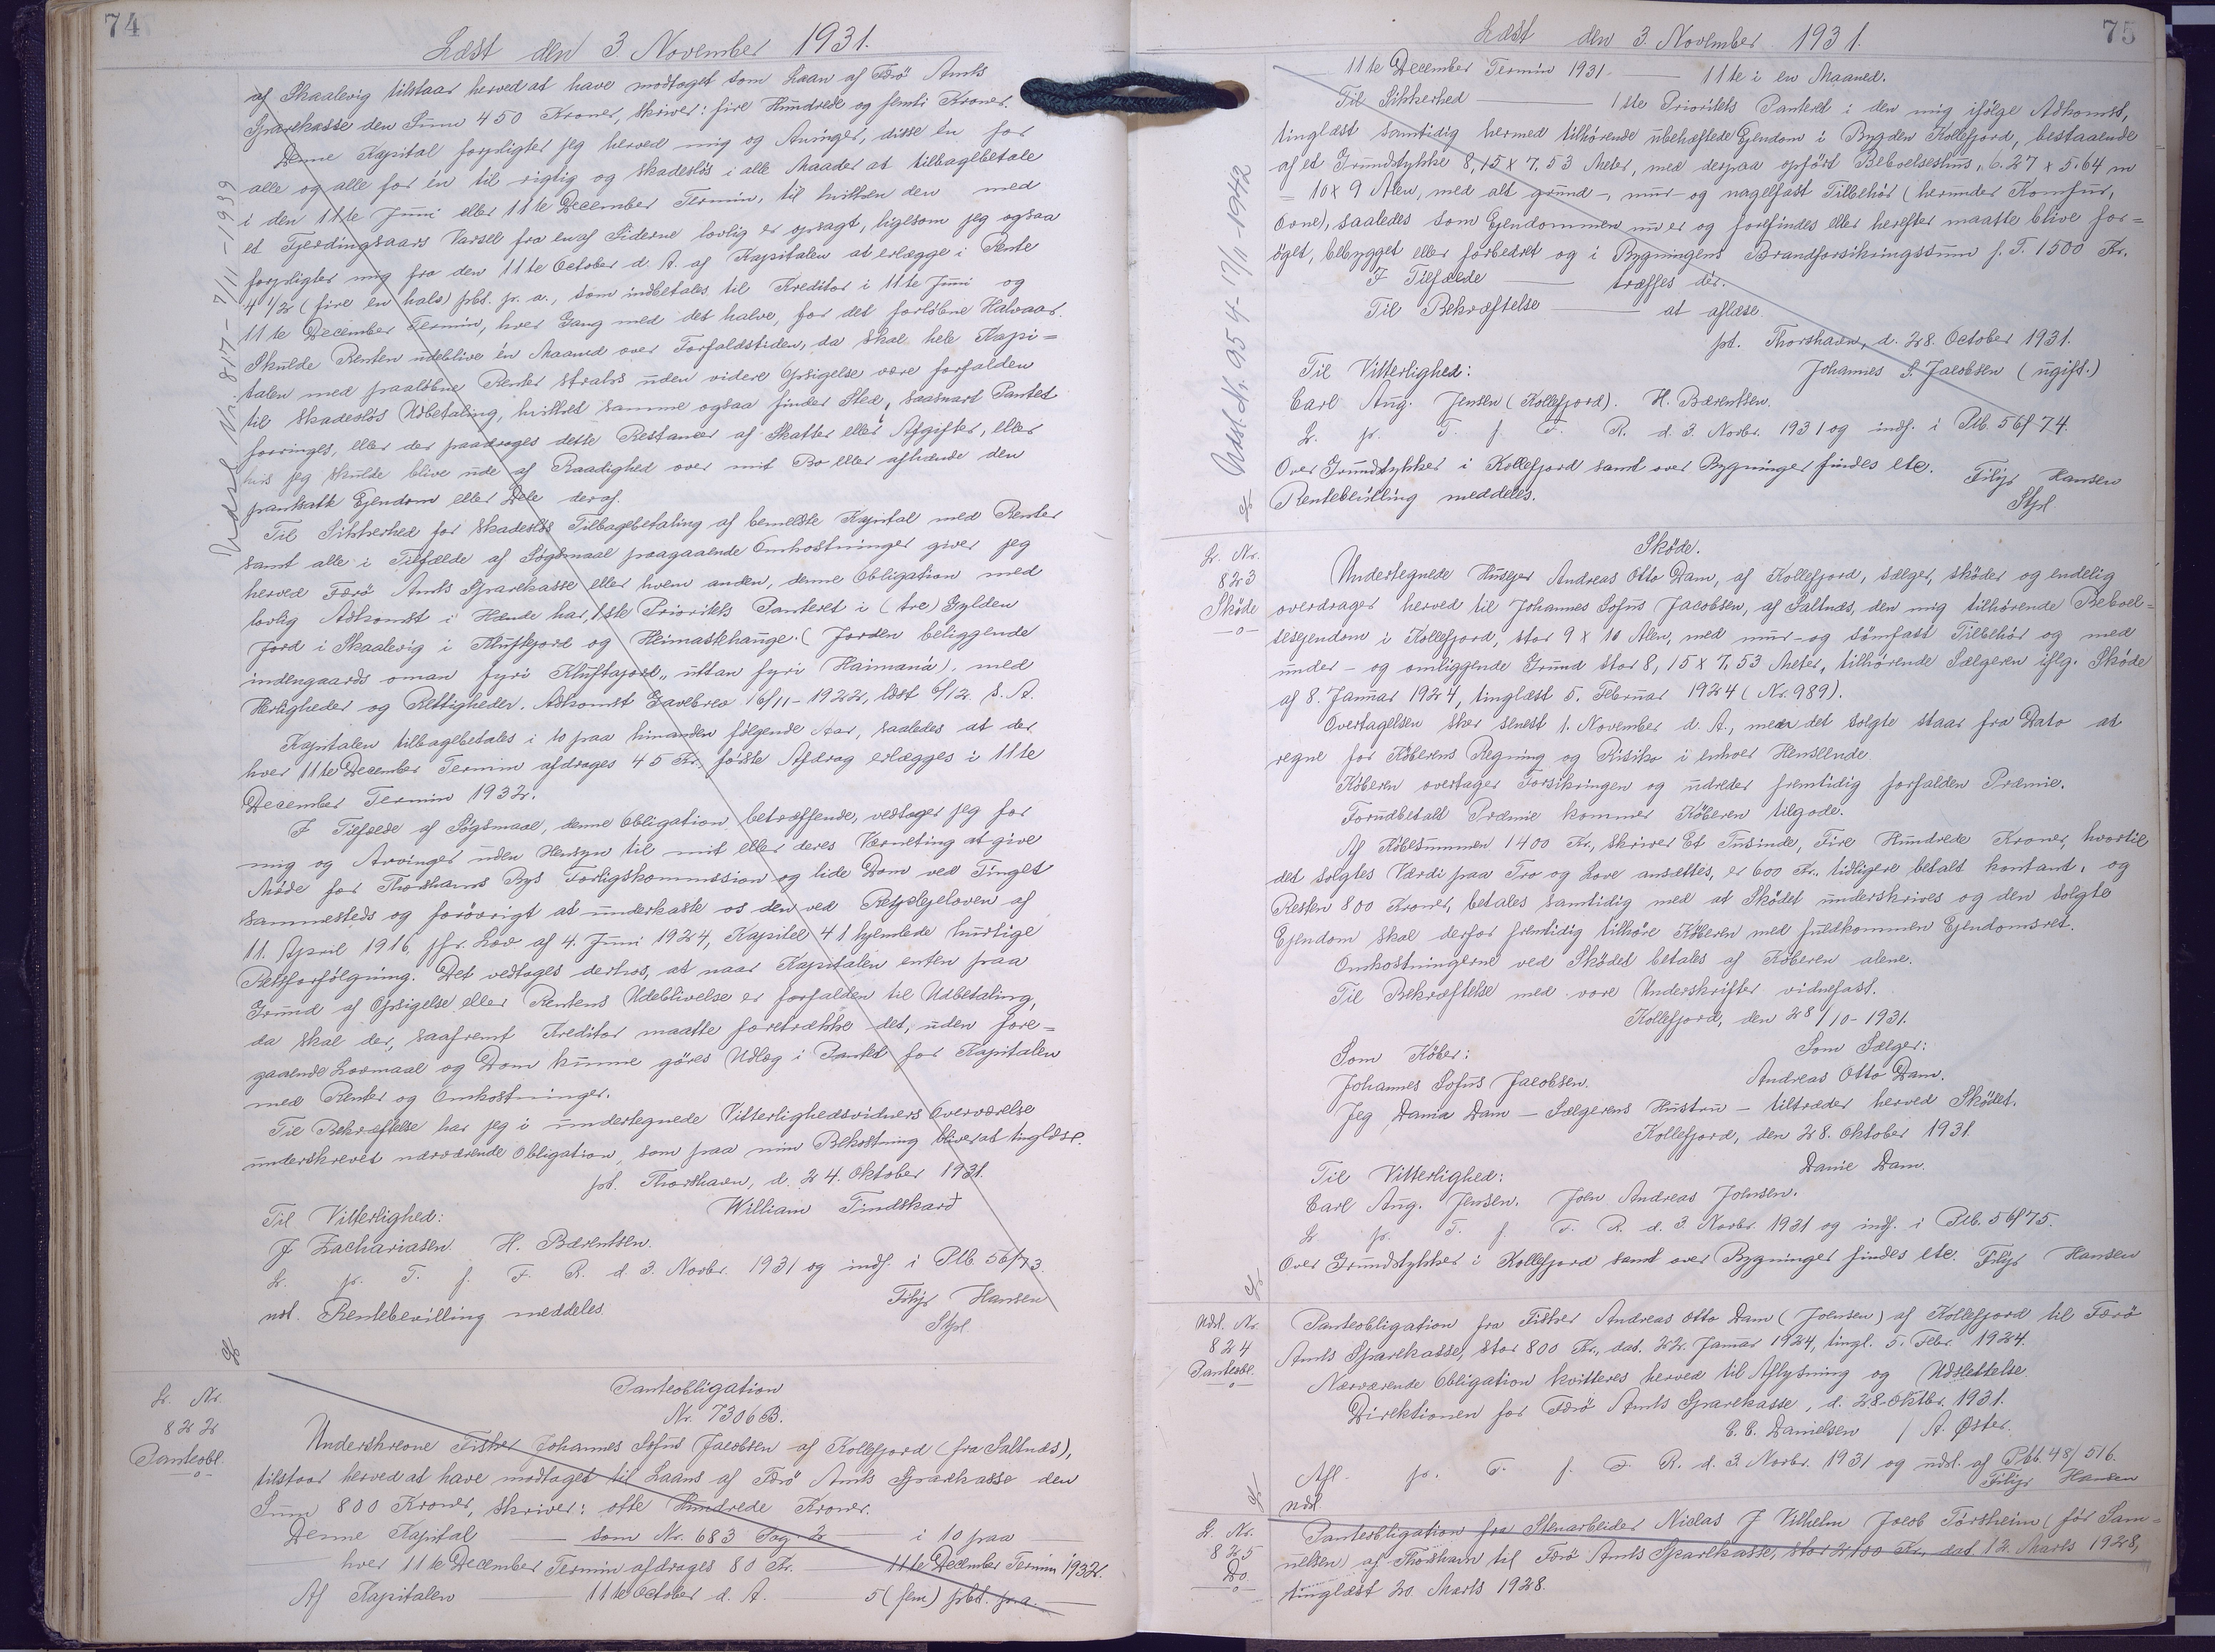 74
Læst den 3. November 1931.
af Skaalevig tilstaar herved at have modtaget som Laan af Færö Amts
Sparekasse den Sum 450 Kroner, skriver: fire Hundrede og femti Kroner.
Denne Kapital forpligter jeg herved mig og Arvinger, disse en for
alle og alle for én til rigtig og skadeslös i alle Maader at tilbagebetale
i den 11te Juni eller 11te December Termin, til hvilken den med
et Fjerdingaars Varsel fra en af Siderne lovlig er opsagt, ligesom jeg ogsaa
forpligter mig fra den 11te October d. A. af Kapitalen at erlægge i Rente
4 1/2 (fire en halv) pCt. pr. a., som indbetales til Kreditor i 11te Juni og
11te December Termin, hver Gang med det halve, for det forløbne Halvaar.
Skulde Renten udeblive én Maaned over Forfaldstiden, da skal hele Kapi=
talen med paaløbne Renter straks uden videre Opsigelse være forfalden
til skadeslös Udbetaling, hvilket samme ogsaa finder Sted, saasnart Pantet
forringes, eller der paadrages dette Restancer af Skatter eller Afgifter, eller
hvis jeg skulde blive ude af Raadighed over mit Bo eller afhænde den
pantsatte Ejendom eller Dele deraf.
Til Sikkerhed for skadeslös Tilbagebetaling af bemeldte Kapital med Renter
samt alle i Tilfælde af Søgsmaal paagaaende Omkostninger giver jeg
herved Færö Amts Sparekasse eller hvem anden, denne Obligation med
lovlig Adkomst i Hænde har, 1ste Prioritets Panteret i (tre) Gylden
Jord i Skaalevig i Kluftfjord og Heimastehauge. (Jorden beliggende
indengaards oman fyri Kluftajord, uttan fyri Haimaná), med
Herligheder og Rettigheder. Adkomst Gavebrev 16/11-1922, læst 6/12 s. A.
Kapitalen tilbagebetales i 10 paa hinanden følgende Aar, saaledes at der
hver 11te December Termin afdrages 45 Kr. første Afdrag erlægges i 11te
December Termin 1932.
I Tilfælde af Søgsmaal, denne Obligation betræffende, vedtager jeg for
mig og Arvinger uden Hensyn til mit eller deres Værneting at give
Møde for Thorshavns Bys Forligskommission og lide Dom ved Tinget
sammesteds og forøvrigt at underkaste os den ved Retsplejeloven af
11. April 1916, jfr. Lov af 4. Juni 1924, Kapitel 41 hjemlede hurtige
Retsforfølgning. Det vedtages derhos, at naar Kapitalen enten paa
Grund af Opsigelse eller Rentens Udeblivelse er forfalden til Udbetaling,
da skal der, saafremt Kreditor maatte foretrække det, uden fore=
gaaende Lovmaal og Dom kunne gøres Udlæg i Pantet for Kapitalen
med Renter og Omkostninger.
Til Bekræftelse har jeg i undertegnede Vitterlighedsvidners Overværelse
underskrevet nærværende Obligation, som paa min Bekostning bliver at tinglæse.
pt. Thorshavn, d. 24. Oktober 1931.
William Tindskard
Til Vitterlighed:
J Zachariasen. H. Bærentsen.
L. pr. T. f. F. R. d. 3. Novbr. 1931 og indf. i Ptb. 56/73.
ndl. Rentebevilling meddeles.
Filip Hansen
Stpl.
Udsl. Nr. 817 - 7/11-1939
L. Nr.
822
Panteobl.
Panteobligation
Nr. 7306 B.
Underskrevne Fisker Johannes Sofus Jacobsen af Kollefjord (fra Saltnæs),
tilstaar herved at have modtaget til Laans af Færö Amts Sparekasse den
Sum 800 Kroner, skriver: otte Hundrede Kroner.
Denne Kapital — som Nr. 683 Pag. 2 — i 10 paa —
— hver 11te December Termin afdrages 80 Kr. — 11te December Termin 1932.
Af Kapitalen — 11te October d. A. — 5 (fem) pCt. pr. a. —
75
Læst den 3. November 1931.
11te December Termin 1931 — 11te i en Maaned.
Til Sikkerhed — 1ste Prioritets Panteret i den mig ifølge Adkomst,
tinglæst samtidig hermed tilhørende ubehæftede Ejendom i Bygden Kollefjord, bestaaende
af et Grundstykke 8,15 x 7,53 Meter, med derpaa opført Beboelseshus, 6.27 x 5.64 m
= 10 x 9 Alen, med alt grund-, mur- og nagelfast Tilbehör (herunder Komfur,
Ovne), saaledes som Ejendommen nu er og forefindes eller herefter maatte blive for=
öget, bebygget eller forbedret og i Bygningens Brandforsikringssum p. T. 1500 Kr.
I Tilfælde — træffes dér.
Til Bekræftelse — at aflæse.
pt. Thorshavn, d. 28. October 1931.
Johannes S. Jacobsen (ugift.)
Til Vitterlighed:
Carl Aug. Jensen (Kollefjord). H. Bærentsen.
L. pr. T. f. F. R. d. 3. Novbr. 1931 og indf. i Ptb. 56/74.
Over Grundstykker i Kollefjord samt over Bygninger findes etc.
Rentebevilling meddeles.
Filip Hansen
Stpl.
Udsl. Nr. 954 - 17/11-1942
L. Nr.
823
Sköde
Sköde.
Undertegnede Husejer Andreas Otto Dam, af Kollefjord, sælger, sköder og endelig
overdrager herved til Johannes Sofus Jacobsen, af Saltnæs, den mig tilhørende Beboel=
sesejendom i Kollefjord, stor 9 x 10 Alen, med mur- og sömfast Tilbehör og med
under- og omliggende Grund stor 8,15 x 7,53 Meter, tilhørende Sælgeren iflg. Sköde
af 8. Januar 1924, tinglæst 5. Februar 1924 (Nr. 989).
Overtagelsen sker senest 1. November d. A., men det solgte staar fra Dato at
regne for Köberens Regning og Risiko i enhver Henseende.
Köberen overtager Forsikringen og udreder fremtidig forfalden Præmie.
Forudbetalt Præmie kommer Köberen tilgode.
Af Köbesummen 1400 Kr., skriver Et Tusinde, Fire Hundrede Kroner, hvortil
det solgtes Værdi paa Tro og Love ansættes, er 600 Kr. tidligere betalt kontant, og
Resten 800 Kroner, betales samtidig med at Sködet underskrives og den solgte
Ejendom skal derfor fremtidig tilhöre Köberen med fuldkommen Ejendomsret.
Omkostningerne ved Sködet betales af Köberen alene.
Til Bekræftelse med vore Underskrifter vidnefast.
Kollefjord, den 28/10-1931.
Som Köber: Som Sælger:
Johannes Sofus Jacobsen. Andreas Otto Dam.
Jeg Dania Dam — Sælgerens Hustru — tiltræder herved Sködet.
Kollefjord, den 28. Oktober 1931.
Danie Dam.
Til Vitterlighed:
Carl Aug. Jensen. John Andreas Johnsen.
L. pr. T. f. F. R. d. 3. Novbr. 1931 og indf. i Ptb. 56/75.
Over Grundstykker i Kollefjord samt over Bygninger findes etc. Filip Hansen
Udsl. Nr.
824
Panteobl.
Panteobligation fra Fisker Andreas Otto Dam (Joensen) af Kollefjord til Færö
Amts Sparekasse, stor 800 Kr., dat. 22. Januar 1924, tingl. 5. Febr. 1924.
Nærværende Obligation kvitteres herved til Aflysning og Udslettelse.
Direktionen for Færö Amts Sparekasse, d. 28. Oktbr. 1931.
C. C. Danielsen / A. Øster.
Afl. pr. T. f. F. R. d. 3. Novbr. 1931 og udsl. af Ptb. 48/516.
ndl.
Filip Hansen
L. Nr.
825
Do
Panteobligation fra Stenarbeider Niclas J Vilhelm Jacob Tórsheim (før Sam=
uelsen) af Thorshavn til Færö Amts Sparekasse, stor 2100 Kr., dat 12. Marts 1928,
tinglæst 20. Marts 1928.